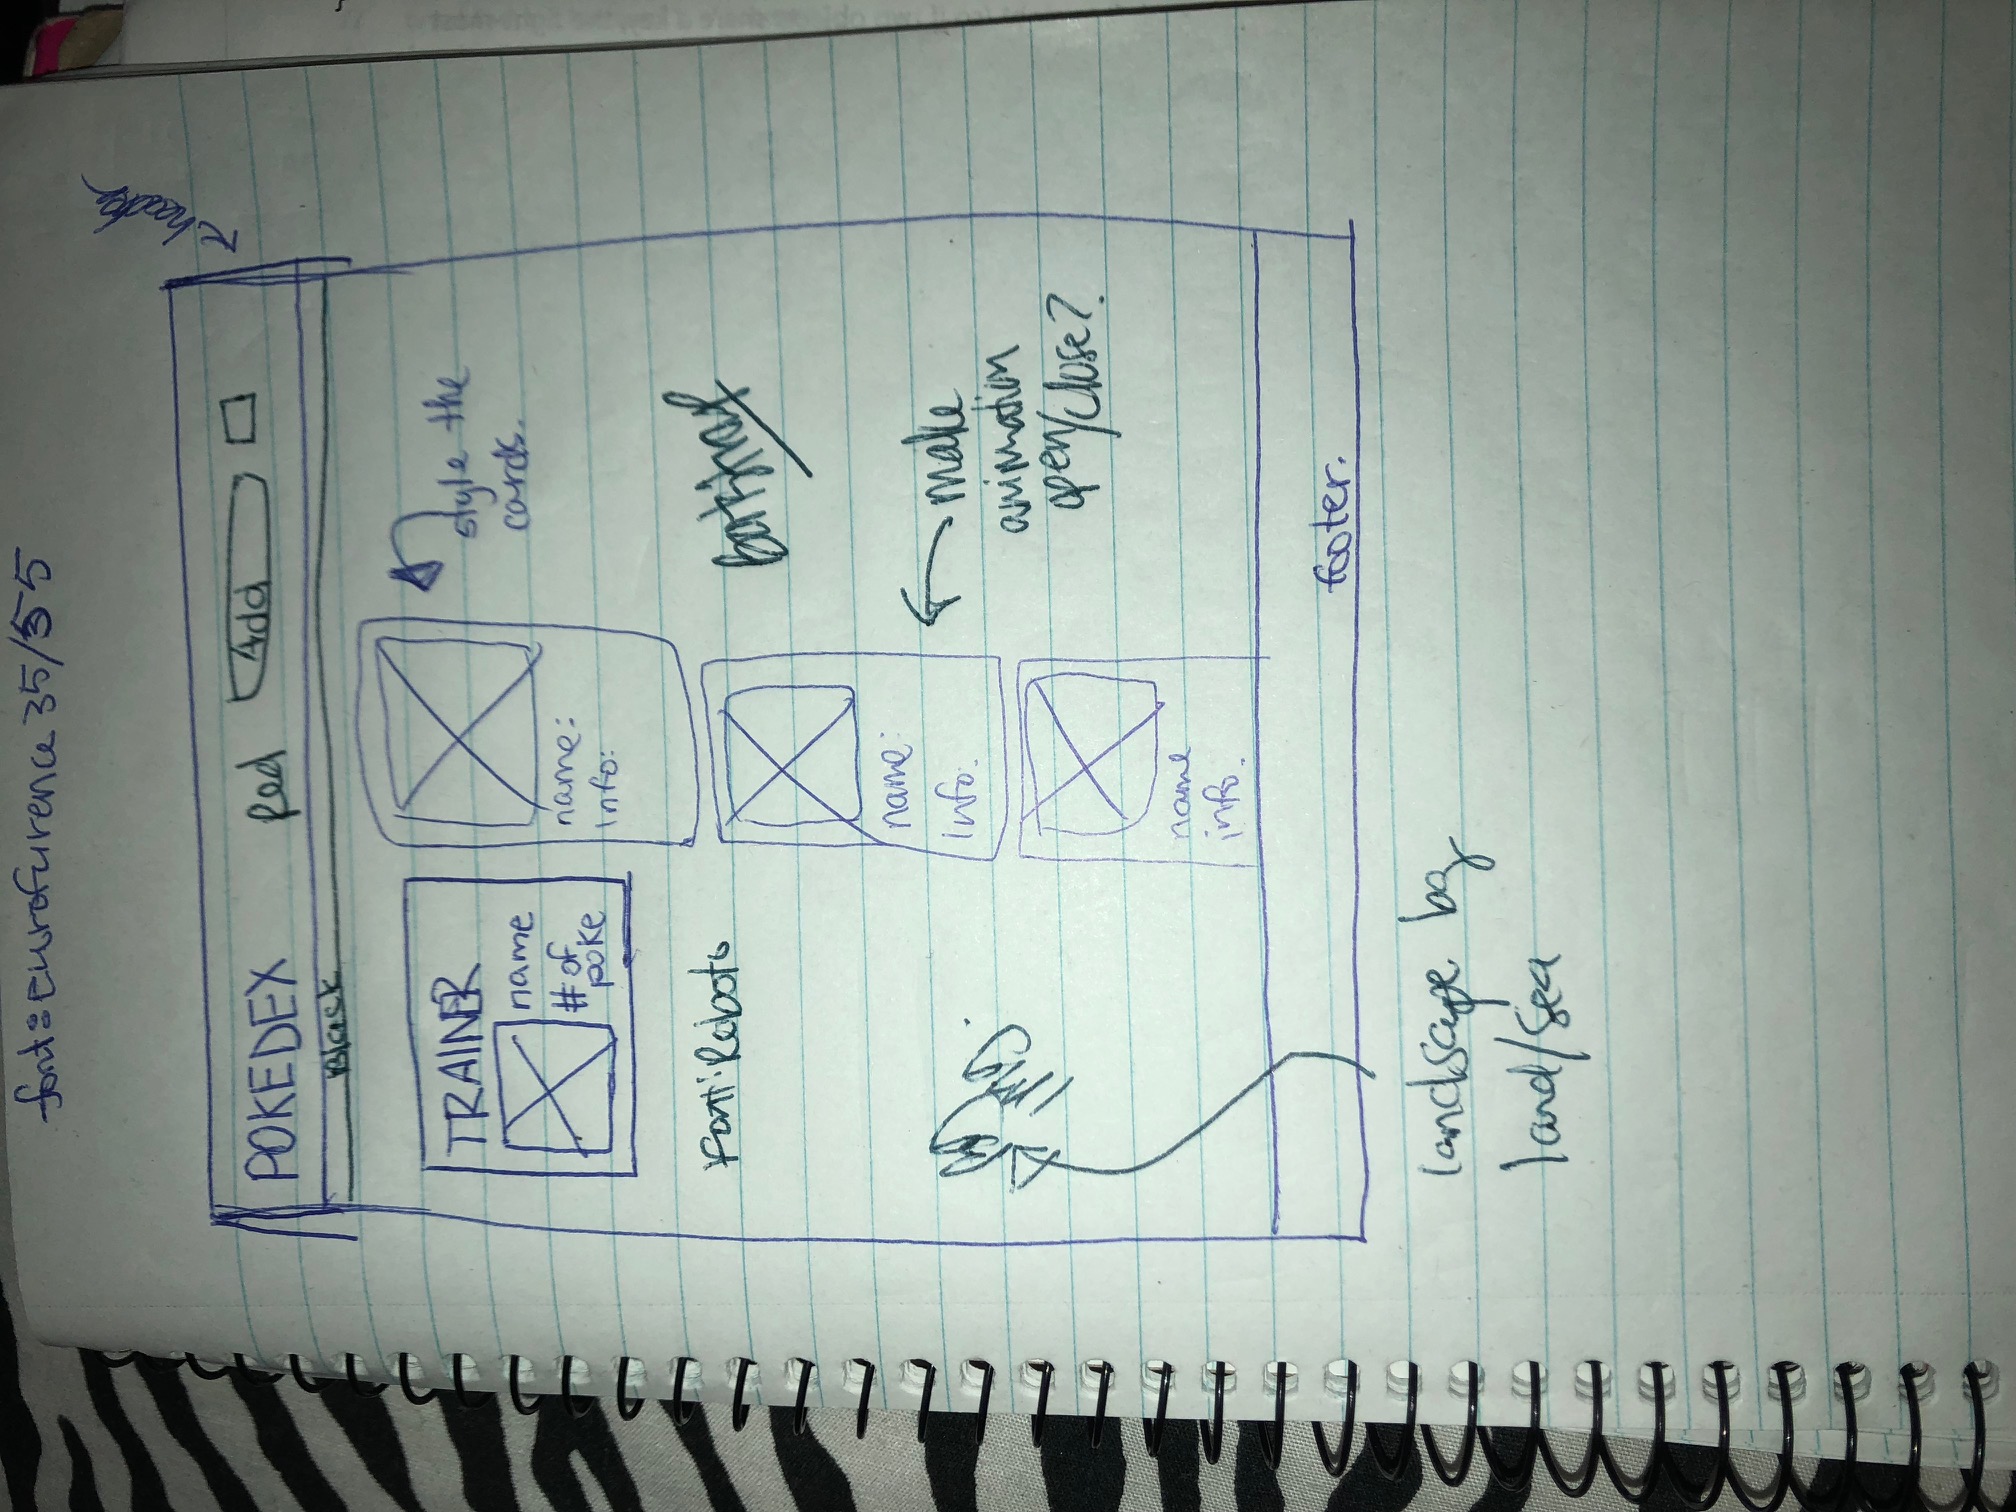 font: Eurofurence 35/55
header
POKEDEX Red Add
Black
TRAINER
name
# of
poke
name:
info:
style the
cards.
Font: Roboto
Bootstrap
name:
info:
BG
img.
make
animation
open/close?
name
info.
footer.
landscape bg
land/sea